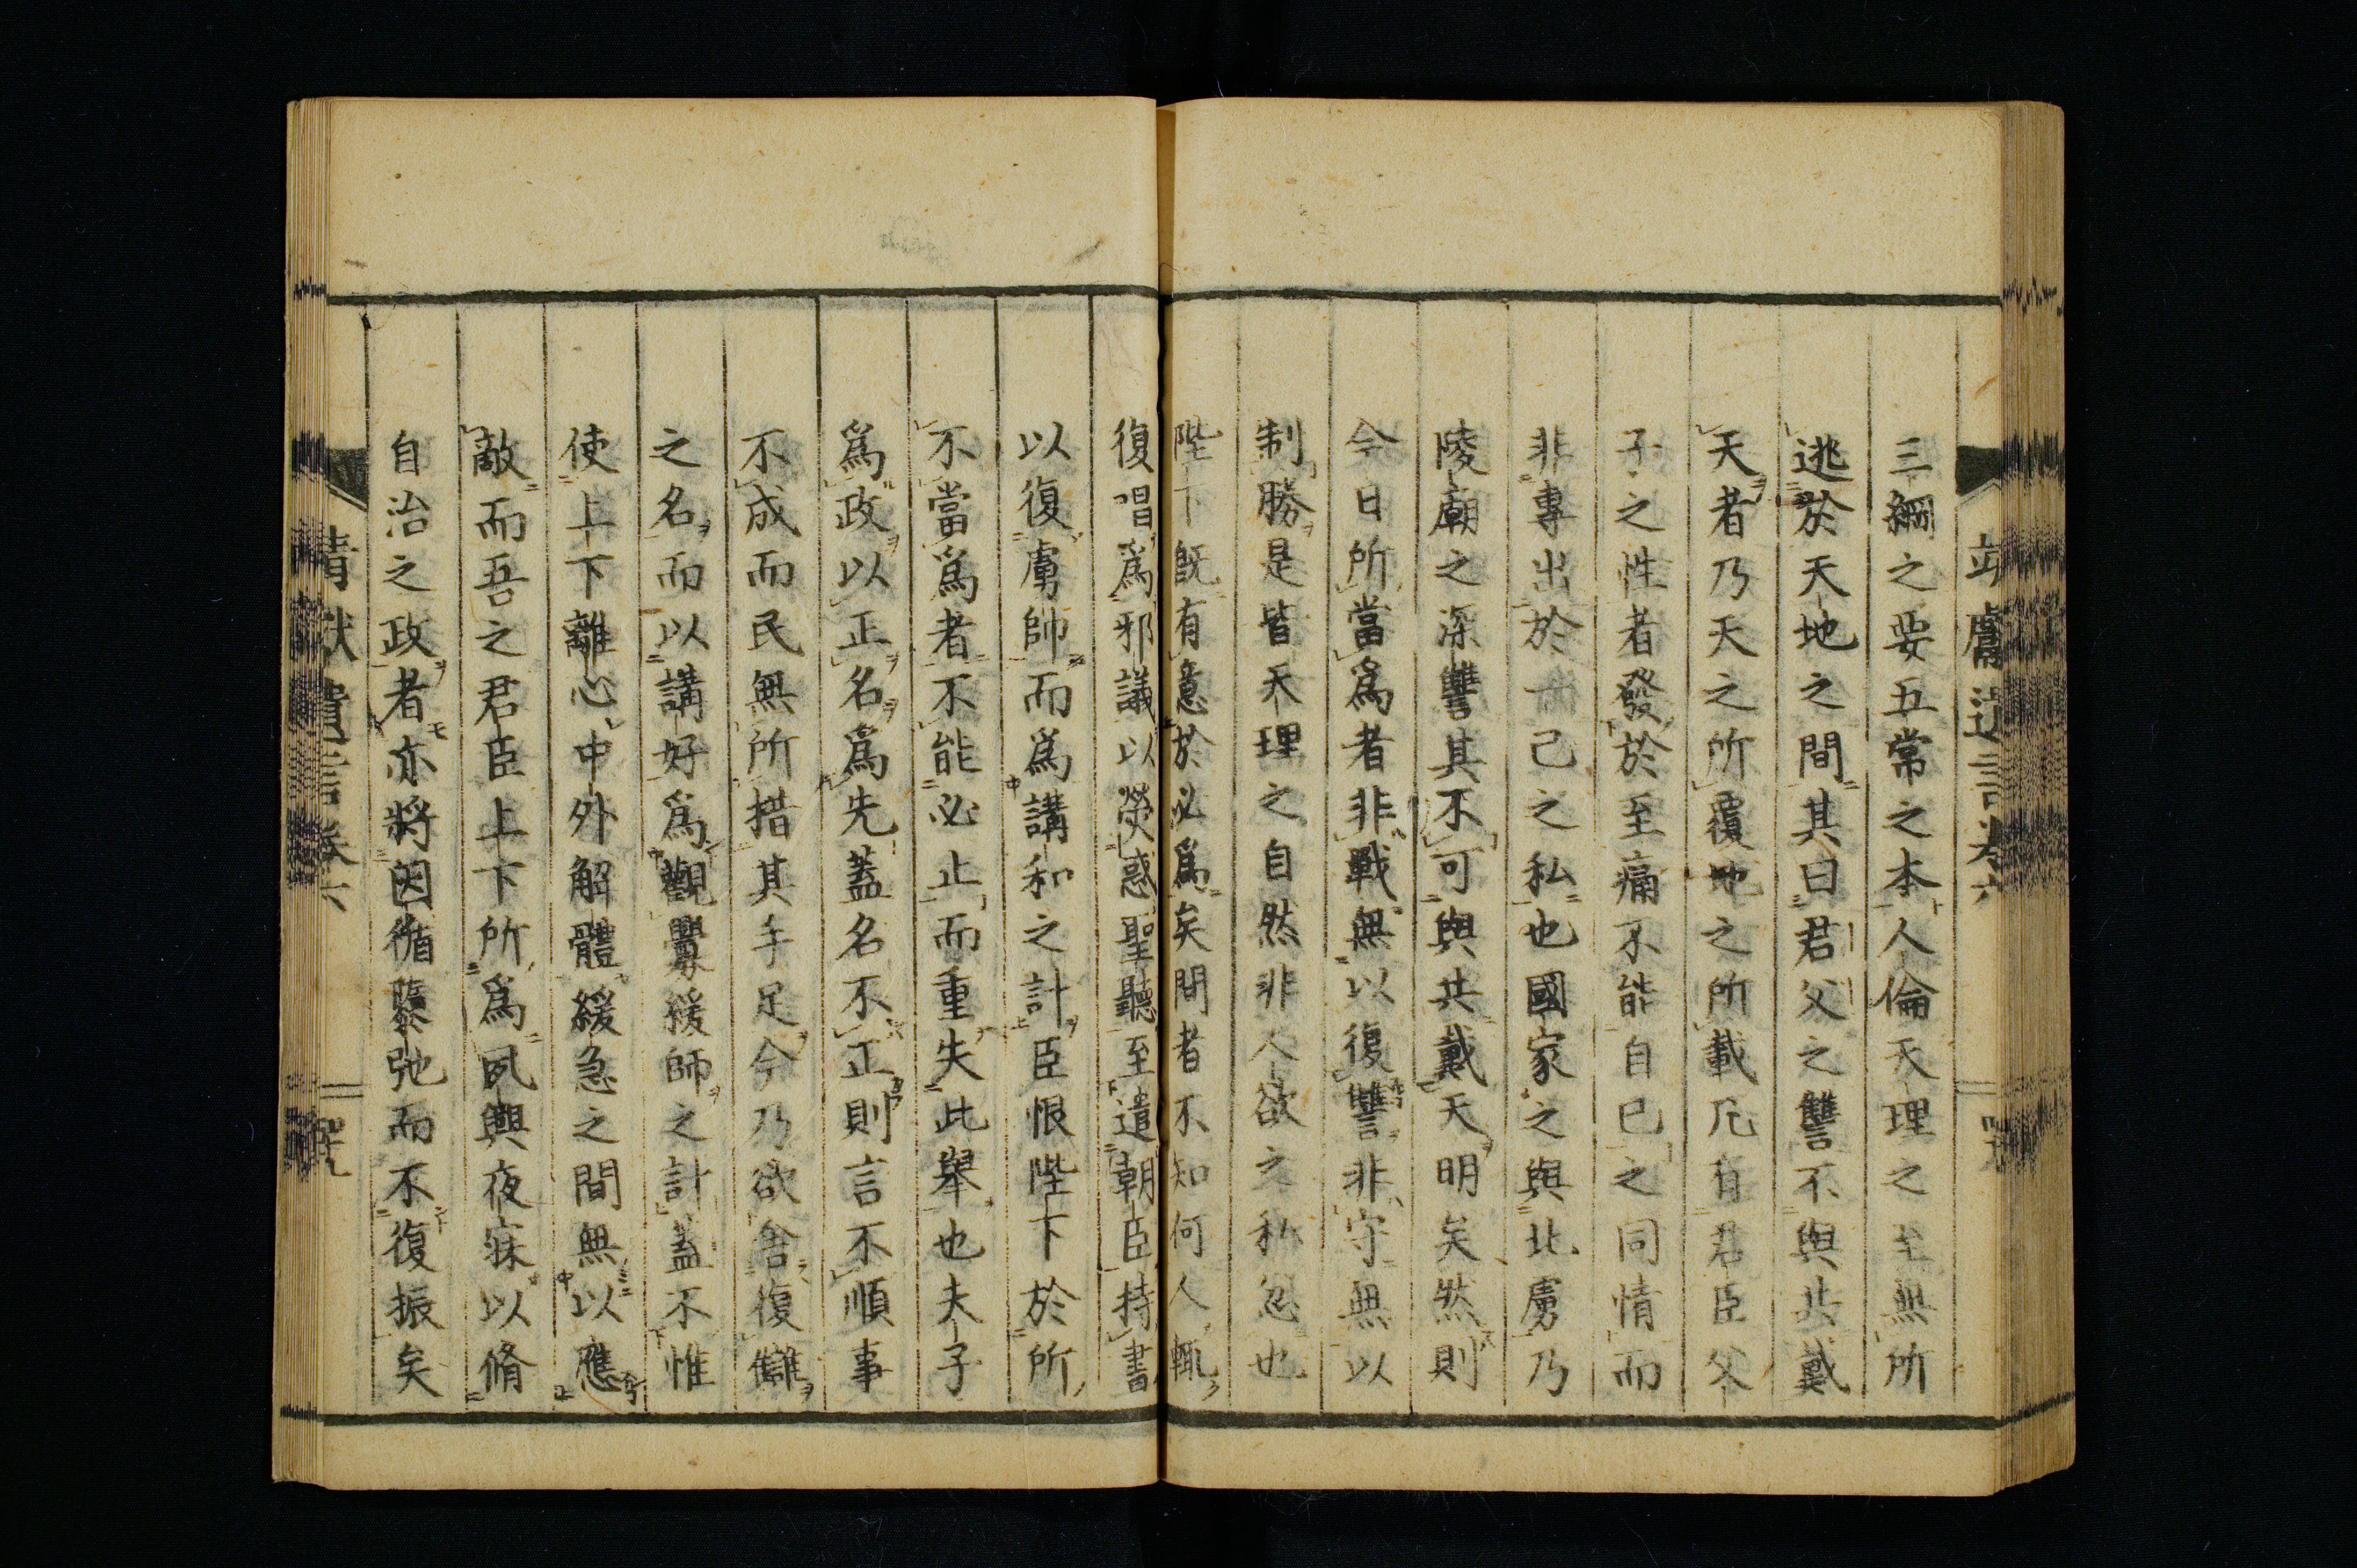 三綱之要五常之本人倫天理之至無所
逃於天地之間其曰君父之讐不與共戴
天者乃天之所覆地之所載凡有君臣父
子之性者發於至痛不能自已之同情而
非專出於一己之私也國家之與北虜乃
陵廟之深讐其不可與共戴天明矣然則
今日所當爲者非戰無以復讐非守無以
制勝是皆天理之自然非人欲之私忿也
陛下既有意於必爲矣間者不知何人輒
復唱爲邪議以熒惑聖聽至遣朝臣持書
以復虜帥而爲講和之計臣恨陛下於所
不當爲者不能必止而重失此舉也夫子
爲政以正名爲先蓋名不正則言不順事
不成而民無所措其手足今乃欲舍復讎
之名而以講好爲觀釁緩師之計蓋不惟
使上下離心中外解體緩急之間無以應
敵而吾之君臣上下所爲夙興夜寐以脩
自治之政者亦將因循隳弛而不復振矣